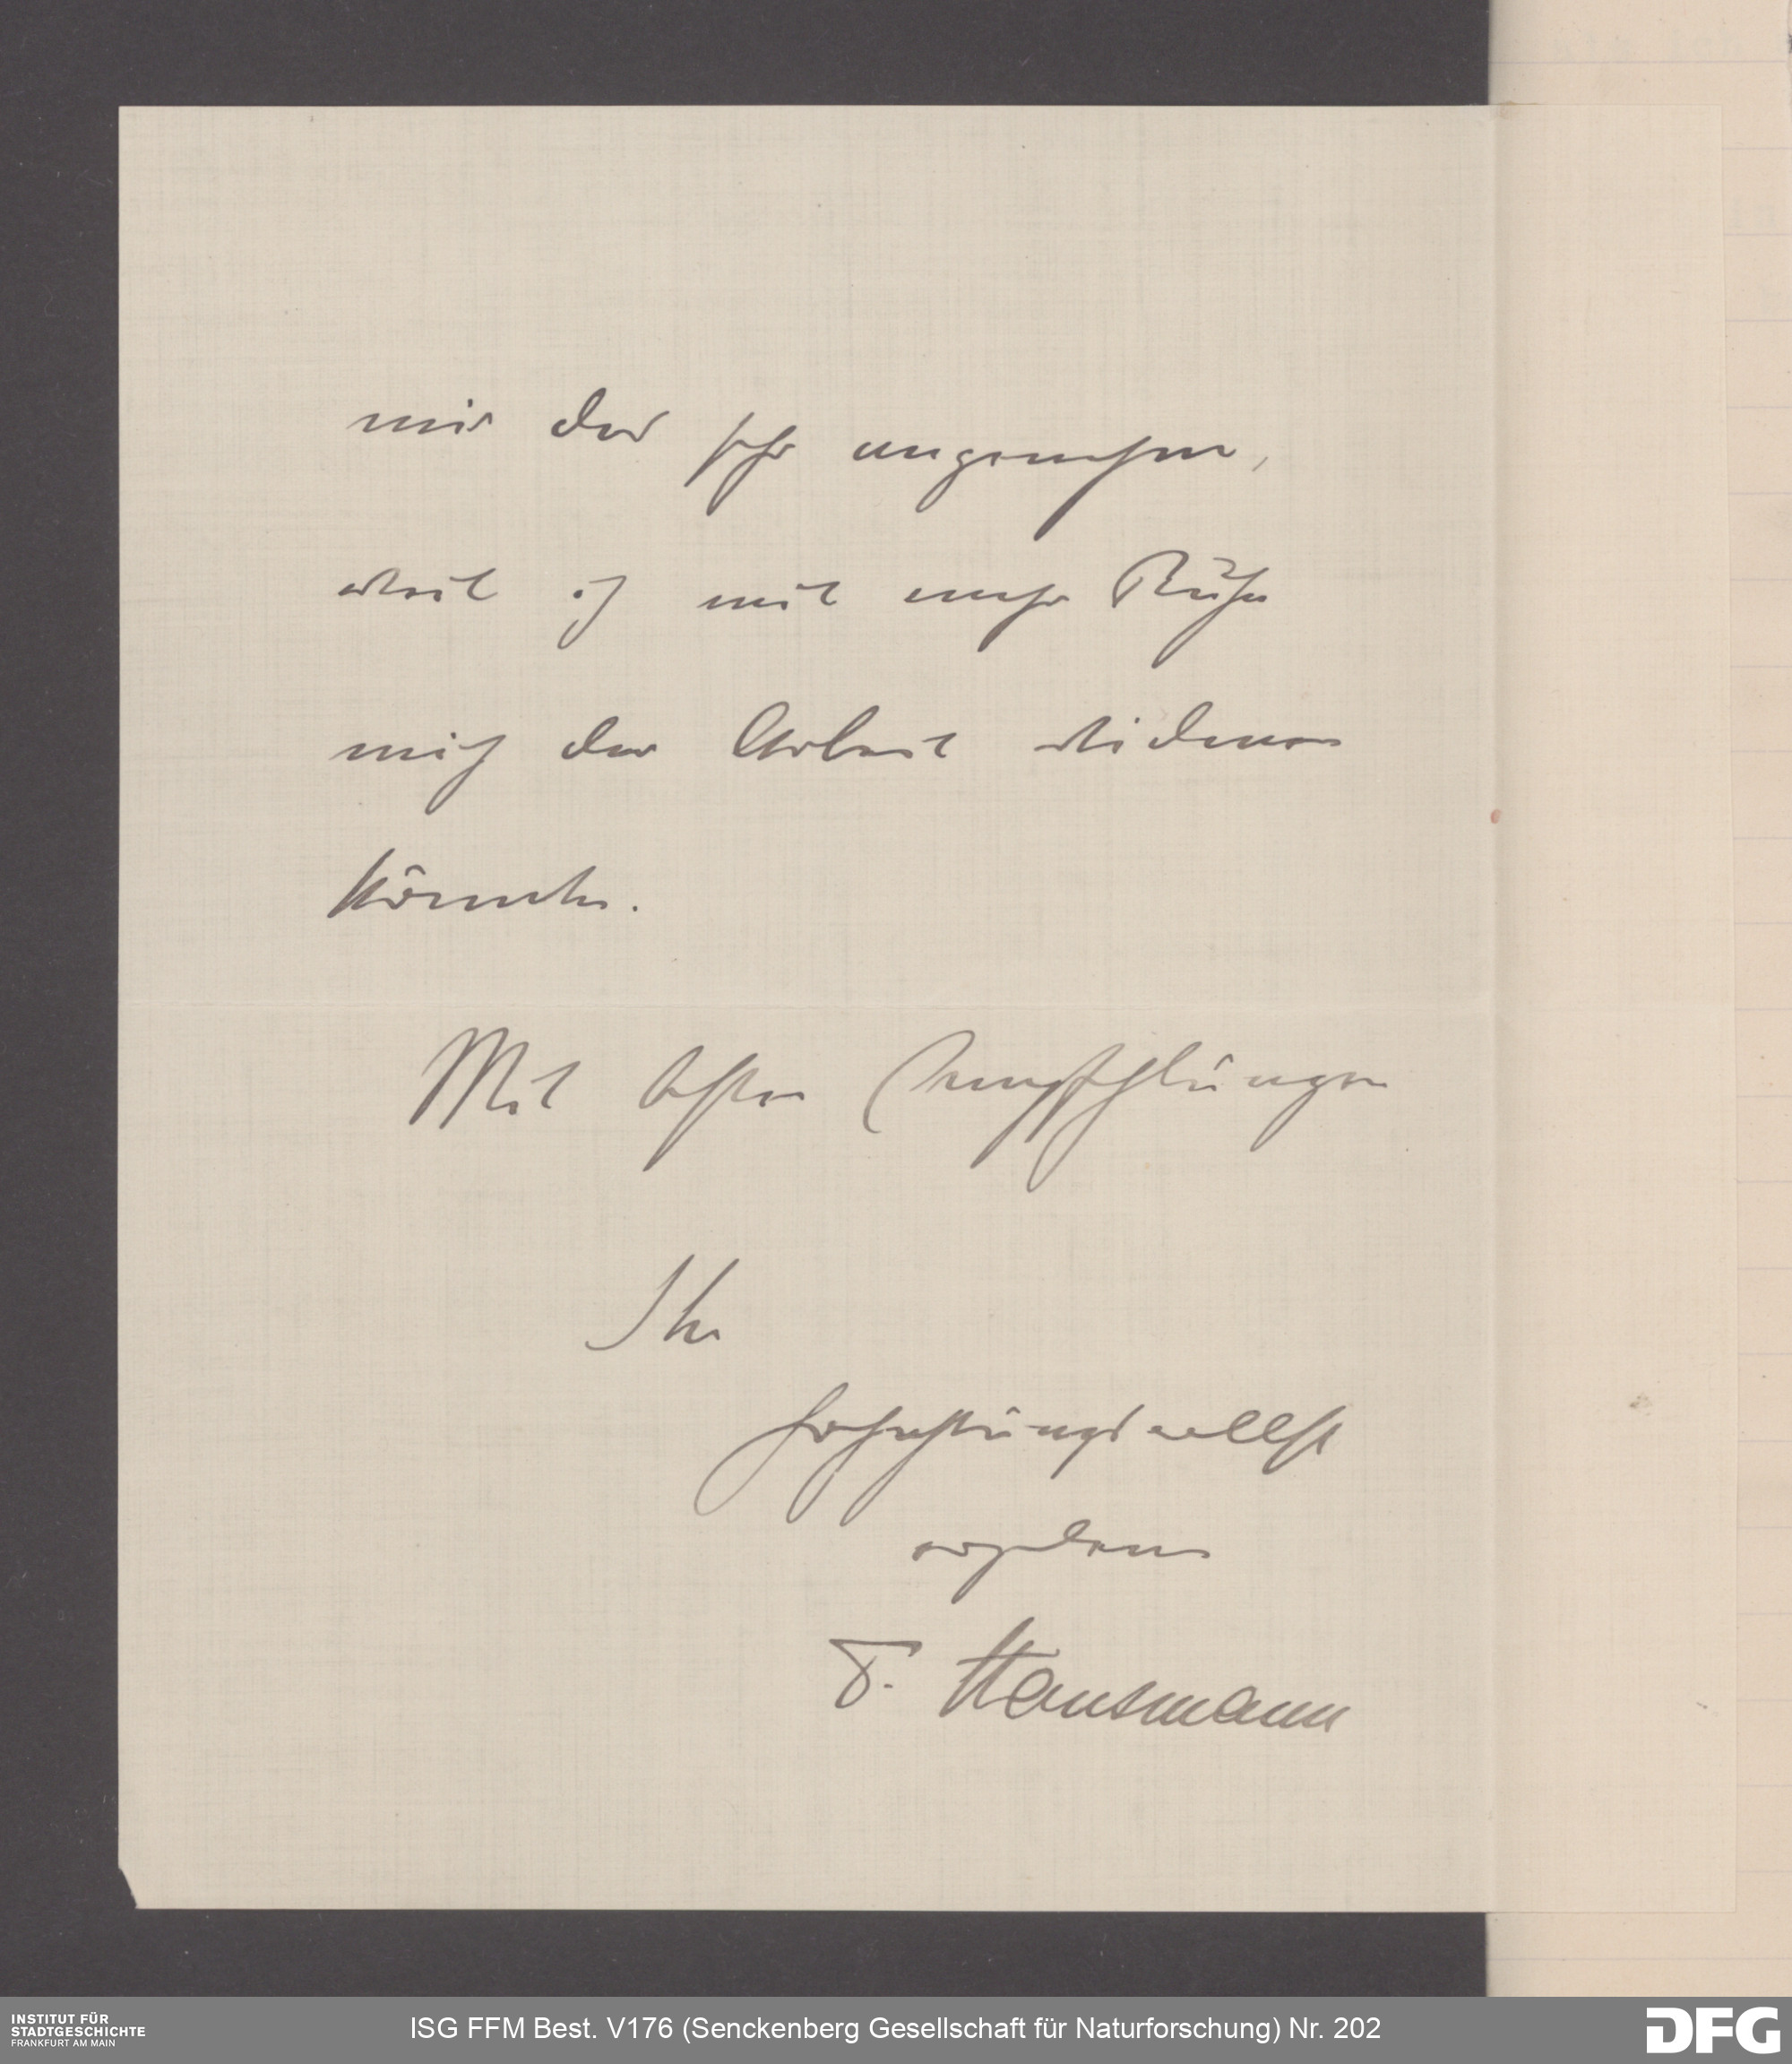 mir das sehr angenehm,
weil ich mit mehr Ruhe
mich der Arbeit widmen
könnte.
Mit besten Empfehlungen
Ihr
hochachtungsvollst
ergebener
F. Hausmann
INSTITUT FÜR
STADTGESCHICHTE
FRANKFURT AM MAIN
ISG FFM Best. V176 (Senckenberg Gesellschaft für Naturforschung) Nr. 202
DFG